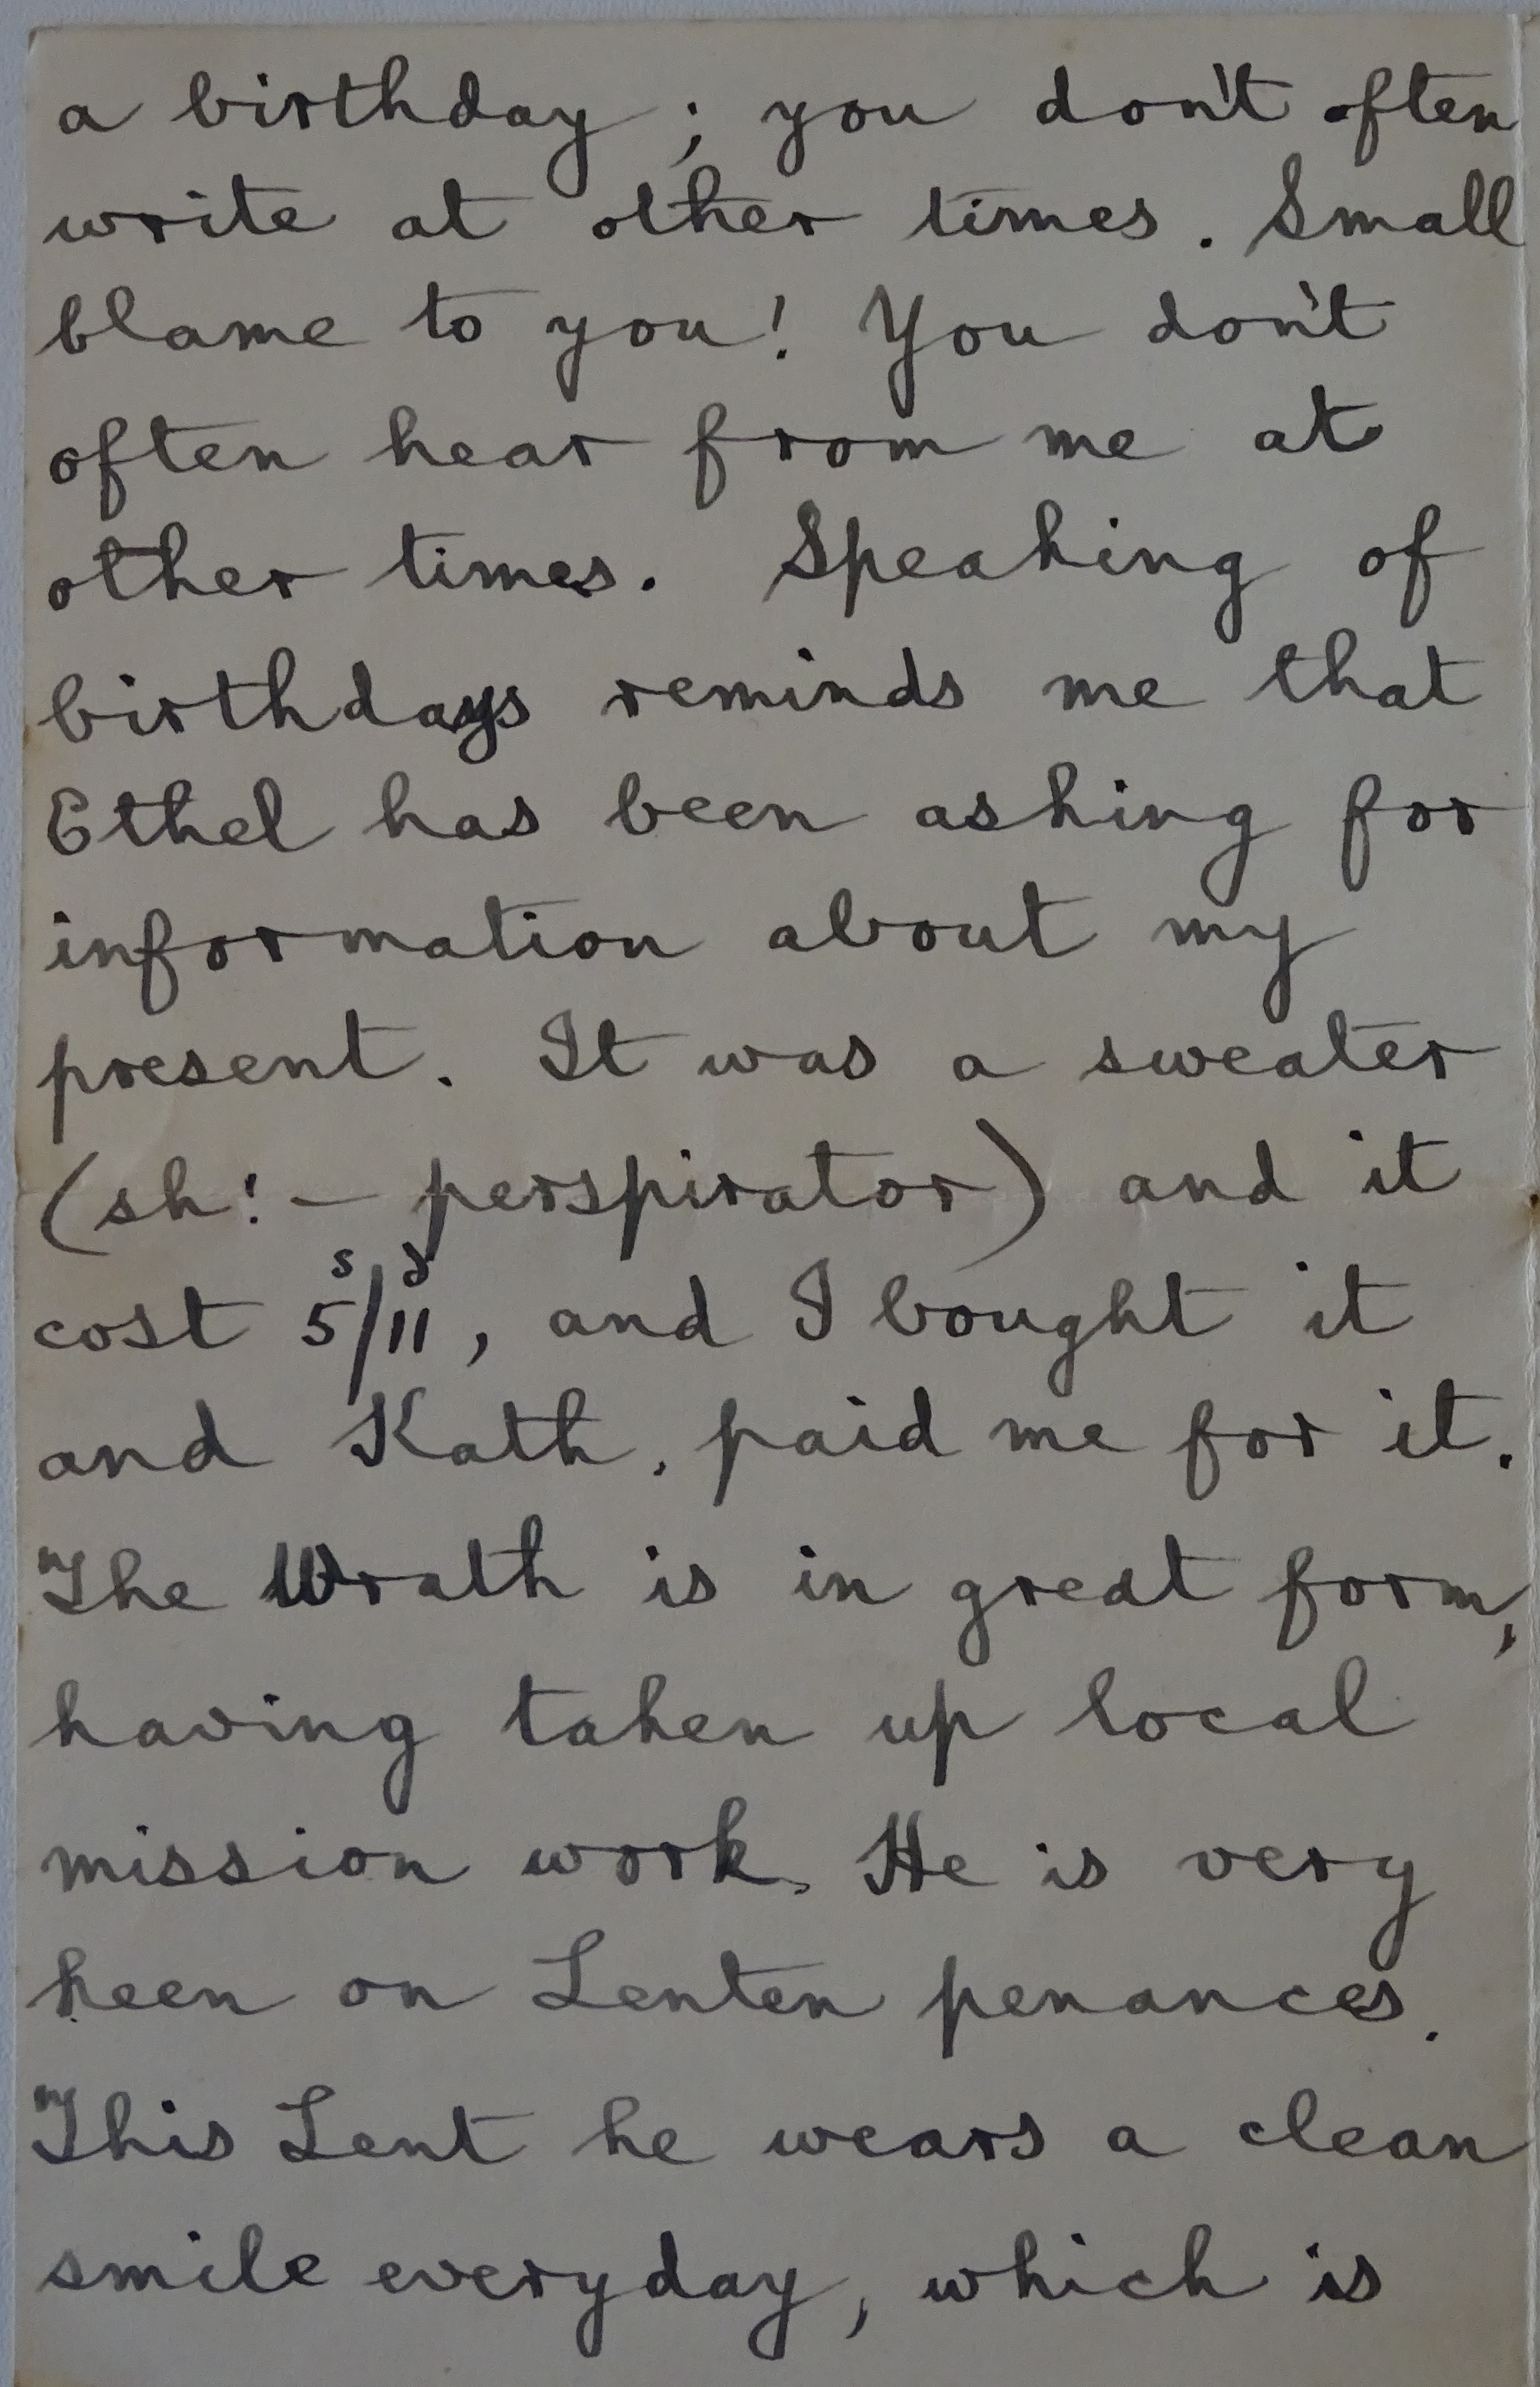 a birthday; you don't often
write at other times. Small
blame to you! You don't
often hear from me at
other times. Speaking of
birthdays reminds me that
Ethel has been asking for
information about my
present. It was a sweater
(sh! – perspirator) and it
cost 5s/11d, and I bought it
and Kath. paid me for it.
The Wrath is in great form,
having taken up local
mission work. He is very
keen on Lenten penances.
This Lent he wears a clean
smile everyday, which is